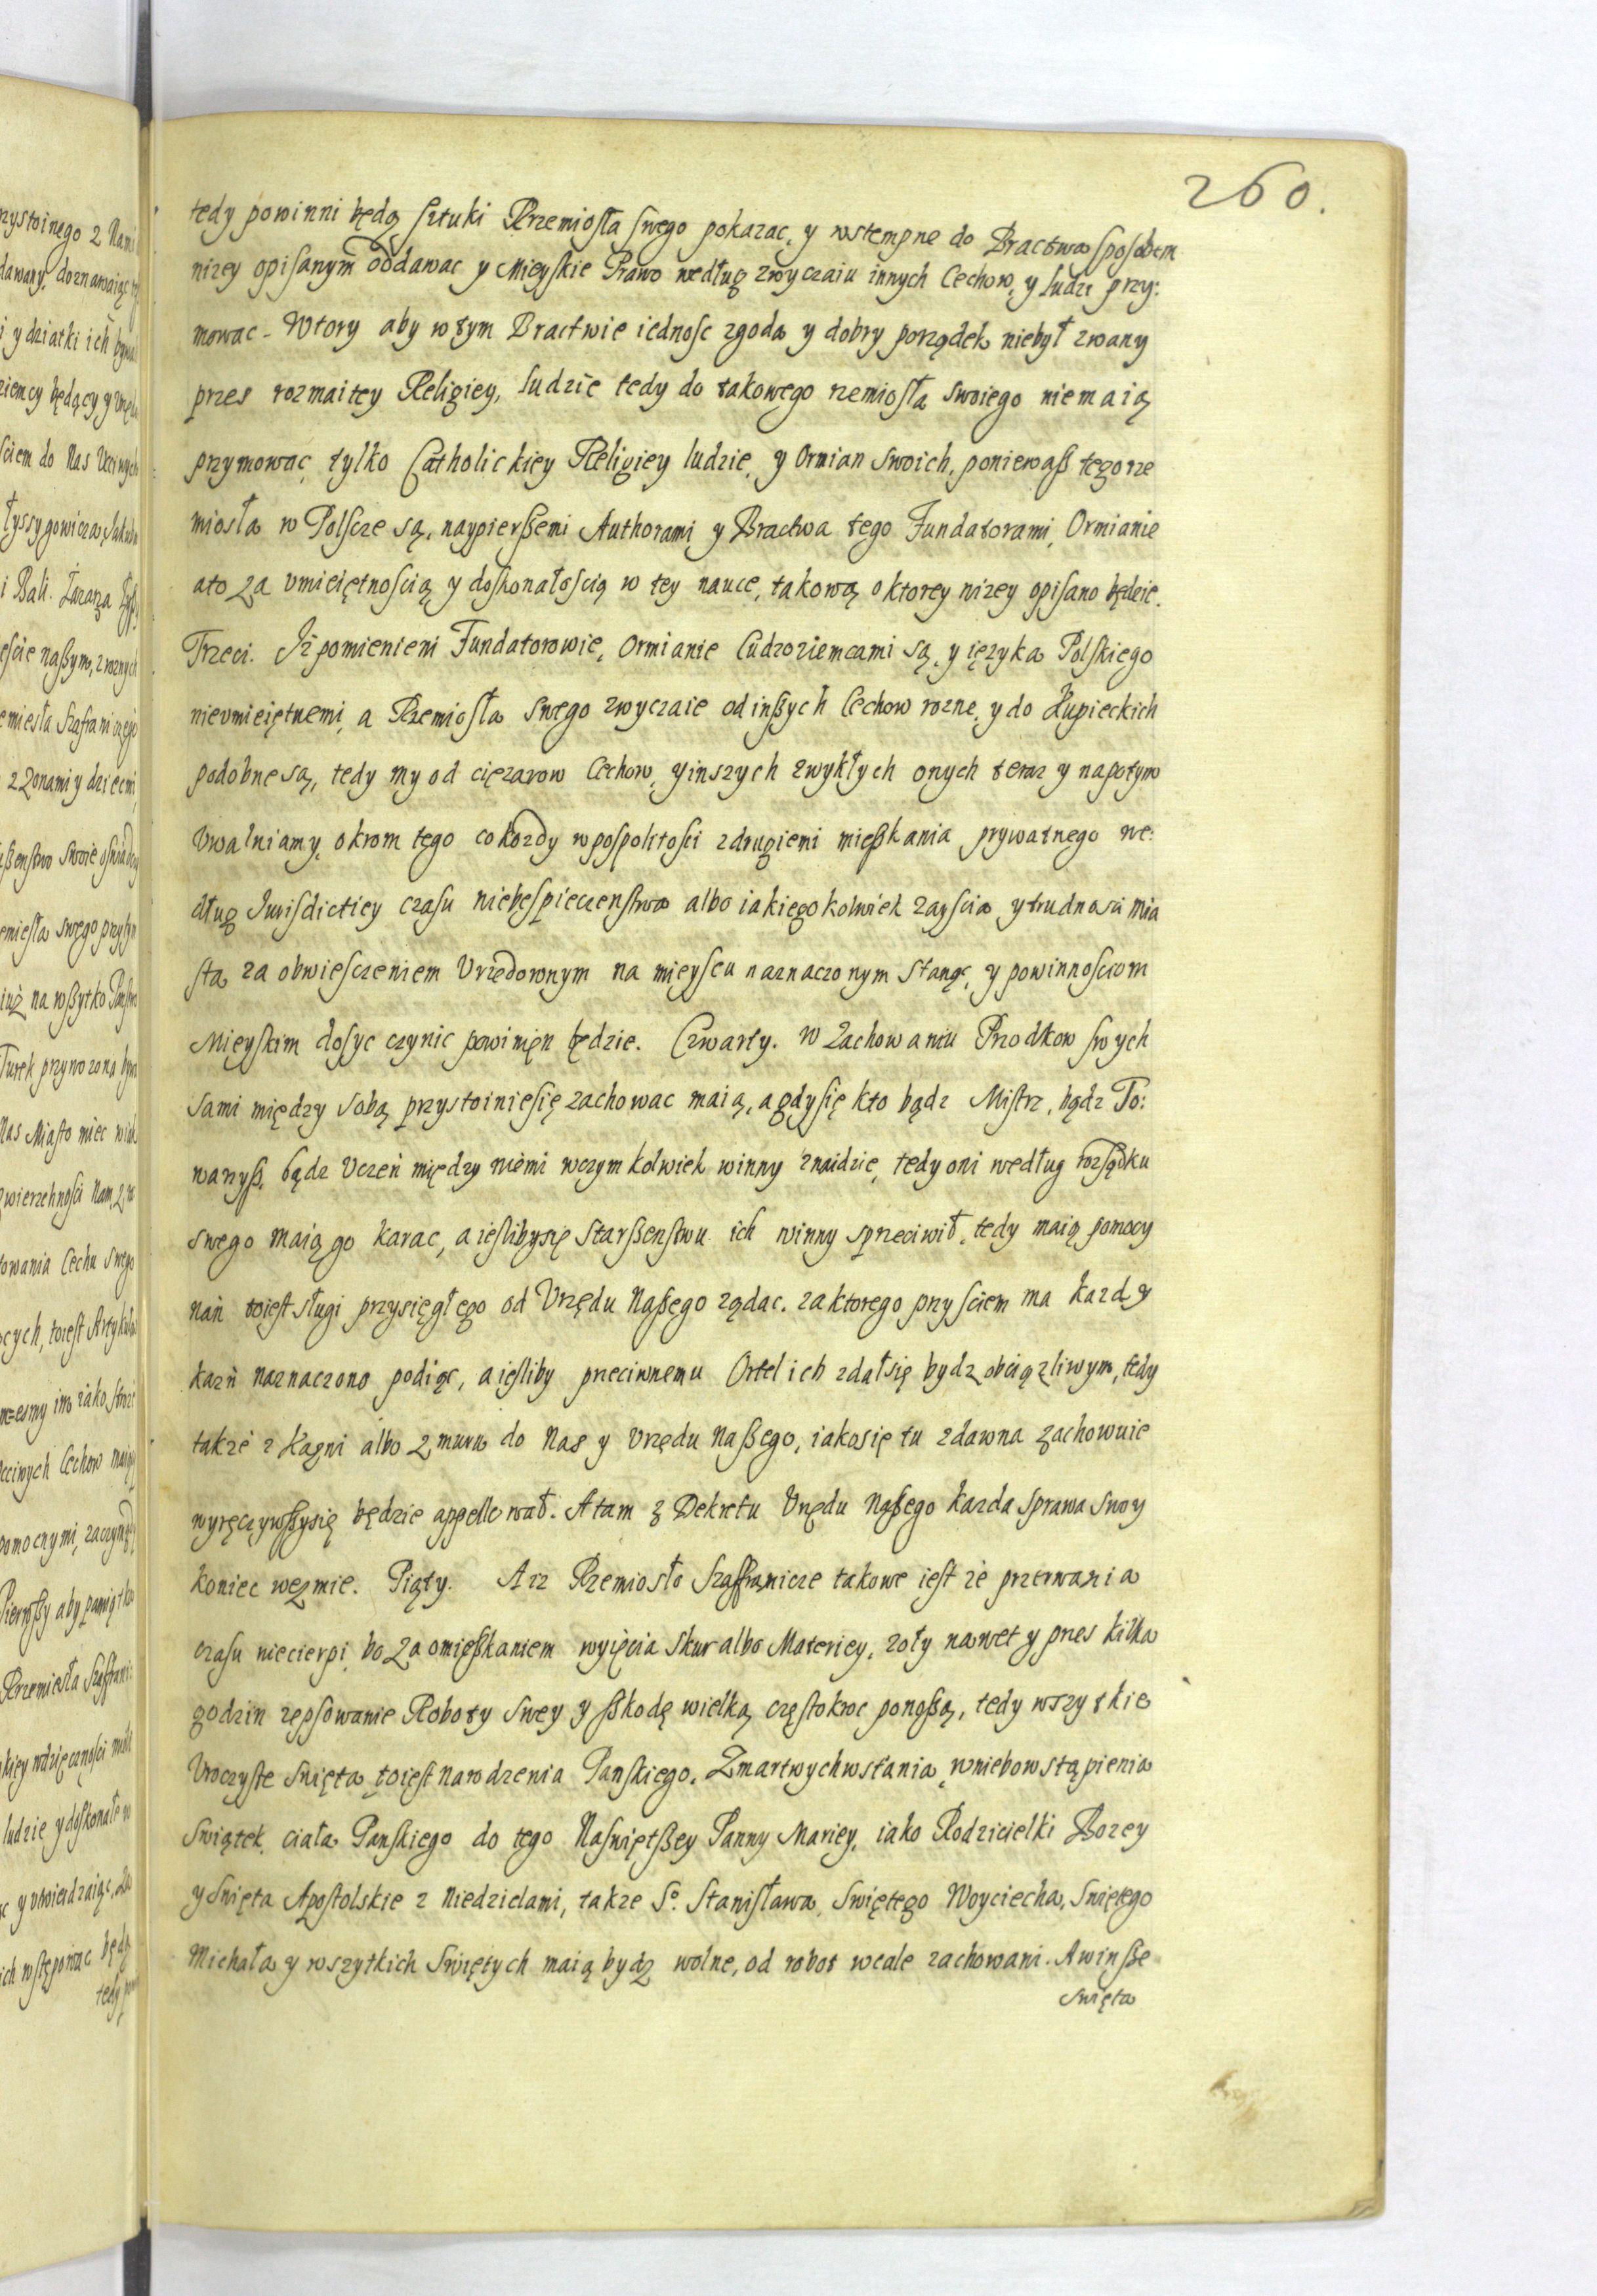 260.
tedy powinni będą sztuki Rzemiosła swego pokazac, y wstempne do Bractwa sposobem
nizey opisanym oddawac y Mieyskie Prawo według zwyczaiu innych Cechow, y ludzi przy:
mowac - Wtory aby w tym Bractwie iednosc zgoda y dobry porządek niebył zwany
przes rozmaitey Religiey, ludzie tedy do takowego rzemiosła swoiego niemaią
przymowac, tylko Catholickiey Religiey ludzie, y Ormian swoich, poniewaß tego rze
miosła w Polscze są, naypierßemi Authorami y Bractwa tego Fundatorami, Ormianie
ato za vmieiętnoscią y doskonałoscią w tey nauce, takową o ktorey nizey opisano będzie.
Trzeci. Iż pomienieni Fundatorowie, Ormianie Cudzoziemcami są, y ięzyka Polskiego
nievmieiętnemi, a Rzemiosła swego zwyczaie od inßych Cechow rozne, y do Kupieckich
podobne są, tedy my od cięzarow Cechow, y inszych zwykłych onych teraz y napotym
Vwalniamy, okrom tego co kozdy w pospolitosci z drugiemi mießkania prywatnego we:
dług Iurisdictiey czasu niebespieczenstwa albo iakiegokolwiek zayscia y trudnosci Mia
sta za obwiesczeniem Vrzedownym na mieyscu naznaczonym stanąc, y powinnosciom
Mieyskim dosyc czynic powinien będzie. Czwarty. w Zachowaniu Przodkow swych
sami między sobą przystoinie się zachowac maią, a gdy się kto bądz Mistrz, bądz To:
warzyß, bądz Vczeń między niemi w czym kolwiek winny znaidzie, tedy oni według rozsądku
swego maią go karac, a iesliby się Starßenstwu ich winny sprzeciwił, tedy maią pomocy
nań toiest sługi przysięgłego od Vrzędu Naßego ządac. za ktorego przysciem ma kazdy
kazń naznaczono podiąc, a iesliby przeciwnemu Ortel ich zdał się bydz obciązliwym, tedy
takze z kazni albo z muru do Nas y Vrzędu Naßego, iako się tu zdawna zachowuie
wyręczywßy się będzie appellował. A tam z Dekretu Vrzędu Naßego kazda sprawa swoy
koniec wezmie. Piąty. A iz Rzemiosło Szaffranicze takowe iest ze przerwania
czasu niecierpi, bo za omießkaniem wyięcia skur albo Materiey, zoły nawet y przes kilka
godzin zepsowanie Roboty swey y ßkodę wielką częstokroc ponoßą, tedy wszytkie
Vroczyste swięta, toiest Narodzenia Panskiego, Zmartwychwstania, wniebowstąpienia
swiątek, ciała Panskiego do tego Naswiętßey Panny Mariey, iako Rodzicielki Bozey
y swięta Apostolskie z Niedzielami, takze So. Stanisława, swiętego Woyciecha, swiętego
Michała y wszytkich Swiętych maią bydz wolne, od robot wcale zachowani. A w inße
swięta